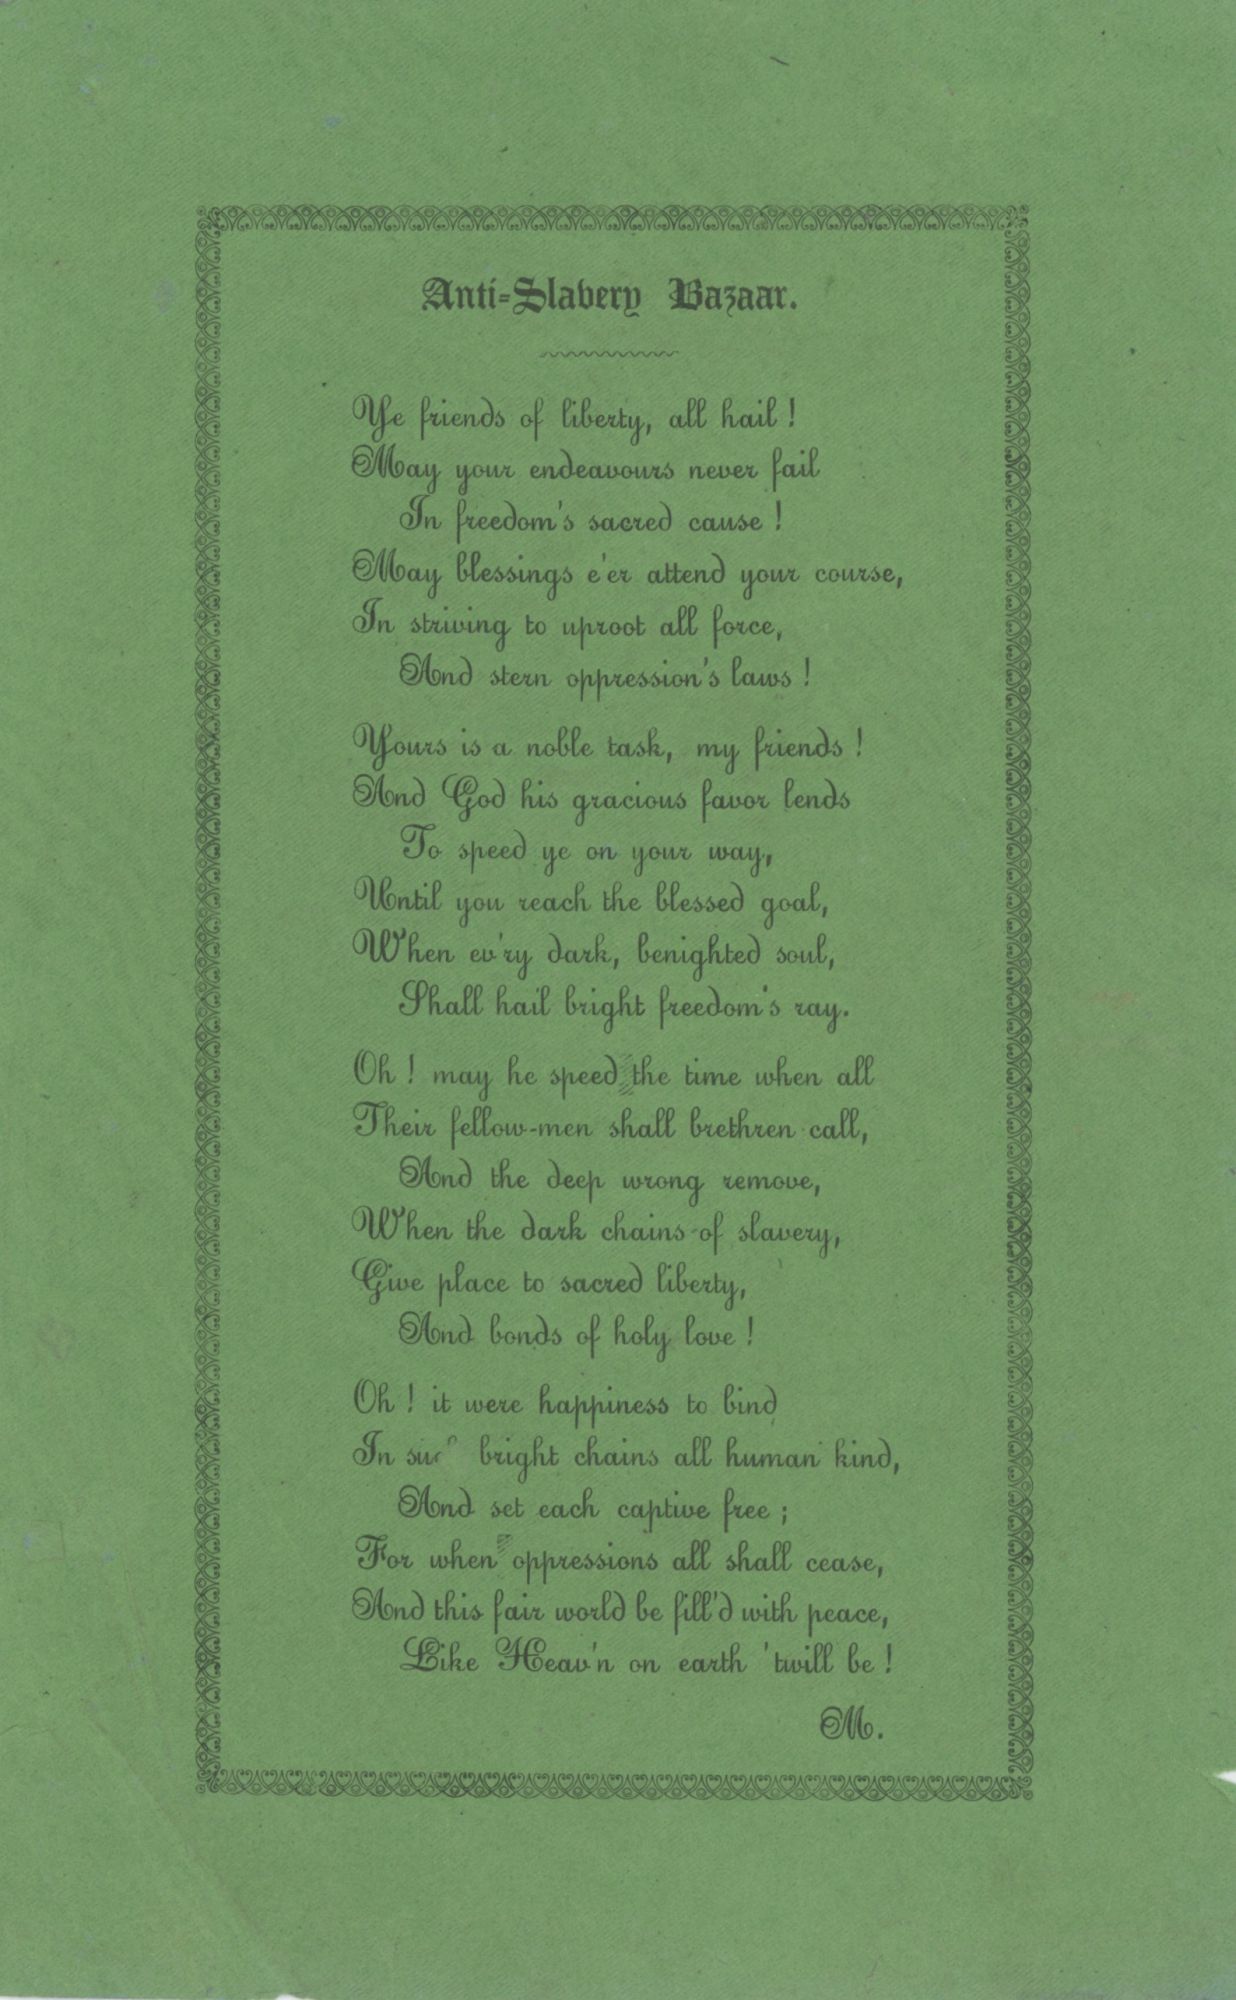 Anti-Slavery Bazaar.
Ye friends of liberty, all hail !
May your endeavours never fail
In freedom's sacred cause !
May blessings e'er attend your course,
In striving to uproot all force,
And stern oppression's laws !
Yours is a noble task, my friends !
And God his gracious favor lends
To speed ye on your way,
Until you reach the blessed goal,
When ev'ry dark, benighted soul,
Shall hail bright freedom's ray.
Oh ! may he speed the time when all
Their fellow-men shall brethren call,
And the deep wrong remove,
When the dark chains of slavery,
Give place to sacred liberty,
And bonds of holy love !
Oh ! it were happiness to bind
In bright chains all human kind,
And set each captive free ;
For when oppressions all shall cease,
And this fair world be fill'd with peace,
Like Heav'n on earth 'twill be !
M.